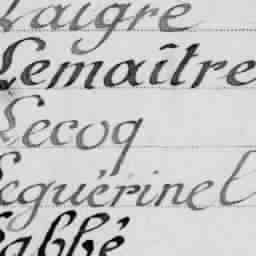 Laigre
Lemaître
Lecoq
Séguérinel
Labbé